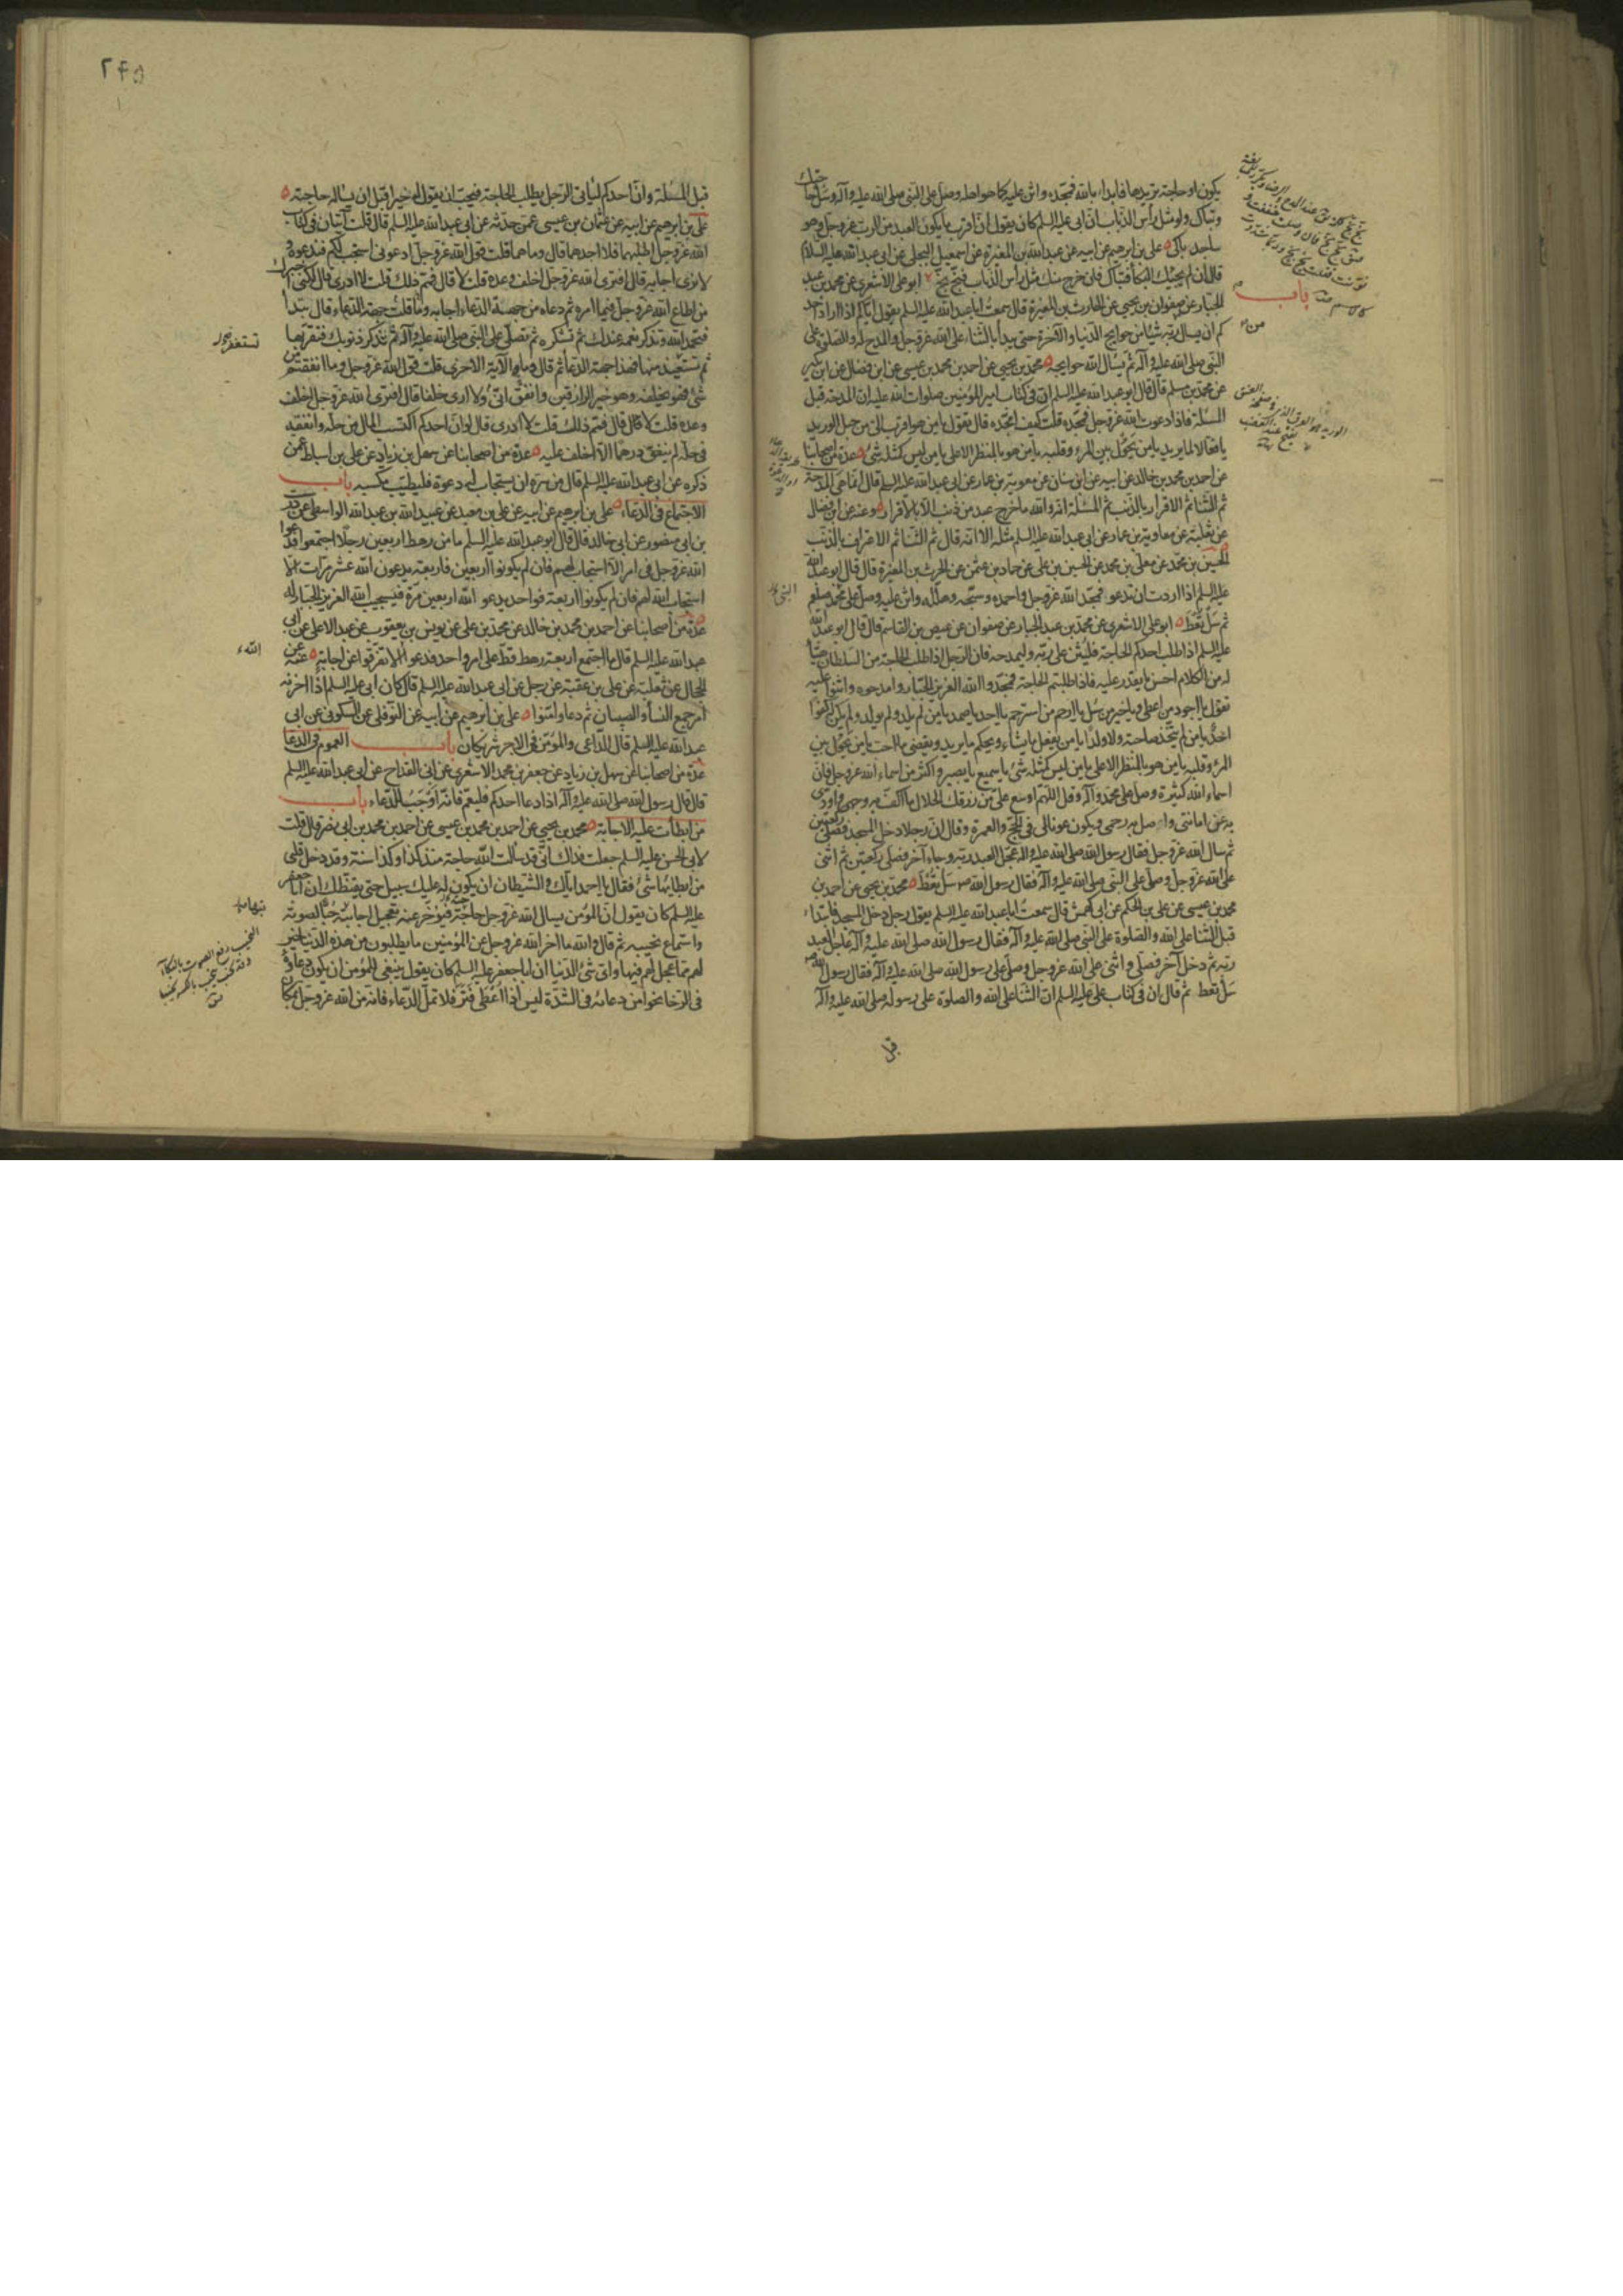 يكون او حاجة تريدها فابدأ بالله فمجّده واثن عليه كما هو اهله وصلّ على النبى صلى الله عليه وآله وسل حاجتك
وتباك ولو مثل رأس الذباب انّ ابى عليه السلم كان يقول انّ اقرب ما يكون العبد من الرب عزوجل وهو
ساجد باك علىّ بن ابرهيم عن ابيه عن عبد الله بن المغيرة عن اسمعيل البجلى عن ابى عبد الله عليه السلام
قال ان لم يجئك البكأ فتباك فان خرج منك مثل رأس الذباب فبخ بخ
باب
ابو على الاشعرى عن محمد بن عبد
الجبار عن صفوان بن يحيى عن الحارث بن المغيرة قال سمعت ابا عبد الله عليه السلم يقول اياكم اذا اراد احد
كم ان يسأل ربه شيئا من حوايج الدنيا والآخرة حتى يبدأ بالثناء على الله عزوجل والمدح له والصلوة على
النبى صلى الله عليه وآله ثم يسأل الله حوايجه محمد بن يحيى عن احمد بن محمد بن عيسى عن ابن فضال عن ابن بكير
عن محمد بن مسلم قال قال ابو عبد الله عليه السلم ان فى كتاب امير المؤمنين صلوات الله عليه ان المدحة قبل
المسئلة فاذا دعوت الله عزوجل فمجّده قلت كيف امجّده قال تقول يا من هو اقرب الىّ من حبل الوريد
يا فعالا لما يريد يا من يحول بين المرء وقلبه يا من هو بالمنظر الاعلى يا من ليس كمثله شئ عدة من اصحابنا
عن احمد بن محمد بن خالد عن ابيه عن ابن سنان عن معوية بن عمار عن ابى عبد الله عليه السلم قال انما هى المدحة
ثم الثنا ثم الاقرار بالذنب ثم المسئلة انه والله ما خرج عبد من ذنب الا بالاقرار وعنه عن ابن فضال
عن ثعلبة عن معاوية بن عمار عن ابى عبد الله عليه السلم مثله الا انه قال ثم الثنا ثم الاعتراف بالذنب
الحسين بن محمد عن معلى بن محمد عن الحسن بن على عن حماد بن عثمن عن الحرث بن المغيرة قال قال ابو عبد الله
عليه السلم اذا اردت ان تدعو فمجّد الله عزوجل واحمده وسبّحه وهلّله واثن عليه وصلّ على محمد
ثم سل تعط ابو على الاشعرى عن محمد بن عبد الجبار عن صفوان عن عيص بن القاسم قال قال ابو عبد الله
عليه السلم اذا طلب احدكم الحاجة فليثن على ربّه وليمدحه فان الرجل اذا طلب الحاجة من السلطان هيّأ
له من الكلام احسن ما يقدر عليه فاذا طلبتم الحاجة فمجّدوا الله العزيز الجبّار وامدحوه واثنوا عليه
تقول يا اجود من اعطى ويا خير من سئل يا ارحم من استرحم يا احد يا صمد يا من لم يلد ولم يولد ولم يكن له كفوا
احد يا من لم يتّخذ صاحبة ولا ولدا يا من يفعل ما يشاء ويحكم ما يريد ويقضى ما احب يا من يحول بين
المرء وقلبه يا من هو بالمنظر الاعلى يا من ليس كمثله شئ يا سميع يا بصير واكثر من اسماء الله عزوجل فان
اسماء الله كثيرة وصل على محمد وآله وقل اللّهم اوسع علىّ من رزقك الحلال ما اكف به وجهى واودّى
به عن امانتى واصل به رحمى ويكون عونا لى فى الحج والعمرة وقال ان رجلا دخل المسجد فصلى ركعتين
ثم سأل الله عزوجل فقال رسول الله صلى الله عليه وآله عجّل العبد ربه وجاء آخر فصلى ركعتين ثم اثنى
على الله عزوجل وصلّ على النبى صلى الله عليه وآله فقال رسول الله ص سل تعط محمد بن يحيى عن احمد بن
محمد بن عيسى عن على بن الحكم عن ابى كهمش قال سمعت ابا عبد الله عليه السلم يقول دخل رجل المسجد فابتدأ
قبل الثنا على الله والصلوة على النبى صلى الله عليه وآله فقال رسول الله صلى الله عليه وآله عاجل العبد
ربه ثم دخل آخر فصلى واثنى على الله عزوجل وصلى على رسول الله صلى الله عليه وآله فقال رسول الله ص
سل تعط ثم قال ان فى كتاب على عليه السلم ان الثنا على الله والصلوة على رسوله صلى الله عليه وآله
قبل
٢۴۵
قبل المسئلة وان احدكم ليأتى الرجل يطلب الحاجة فيحب ان يقول له خيرا قبل ان يسأله حاجته
على بن ابرهيم عن ابيه عن عثمان بن عيسى عمن حدثه عن ابى عبد الله عليه السلم قال قلت آيتان فى كتاب
الله عزوجل اطلبهما فلا اجدهما قال وما هما قلت قول الله عزوجل ادعونى استجب لكم فندعوه و
لا نرى اجابة قال افترى الله عزوجل اخلف وعده قلت لا قال فمم ذلك قلت لا ادرى قال لكنى اخبرك
من اطاع الله عزوجل فيما امره ثم دعاه من جهة الدعاء اجابه قلت وما جهة الدعاء قال تبدأ
فتحمد الله وتذكر نعمه عندك ثم تشكره ثم تصلى على النبى صلى الله عليه وآله ثم تذكر ذنوبك فتقر بها
تستغفر
ثم تستعيذ منها فهذا جهة الدعا ثم قال وما الآية الاخرى قلت قول الله عزوجل وما انفقتم من
شئ فهو يخلفه وهو خير الرازقين وانفق ولا ارى خلفا قال افترى الله عزوجل اخلف
وعده قلت لا قال فمم ذلك قلت لا ادرى قال لو ان احدكم اكتسب المال من حله وانفقه
فى حله لم ينفق درهما الا اخلف عليه عدة من اصحابنا عن سهل بن زياد عن على بن اسباط عمن
ذكره عن ابى عبد الله عليه السلم قال من سره ان يستجاب له دعوة فليطيّب مكسبه باب
الاجتماع فى الدعاء على بن ابرهيم عن ابيه عن على بن معبد عن عبيد الله بن عبد الله الواسطى عن درست
بن ابى منصور عن ابى خالد قال قال ابو عبد الله عليه السلم ما من رهط اربعين رجلا اجتمعوا فدعوا
الله عزوجل فى امر الا استجاب لهم فان لم يكونوا اربعين فاربعة يدعون الله عشر مرات الا
استجاب الله لهم فان لم يكونوا اربعة فواحد يدعو الله اربعين مرة فيستجيب الله العزيز الجبار له
عدة من اصحابنا عن احمد بن محمد بن خالد عن محمد بن على عن يونس بن يعقوب عن عبد الاعلى عن ابى
عبد الله عليه السلم قال ما اجتمع اربعة رهط قط على امر واحد فدعوا الا تفرقوا عن اجابة عنه عن
الله
الحجال عن ثعلبة عن على بن عقبة عن رجل عن ابى عبد الله عليه السلم قال كان ابى عليه السلم اذا احزنه
امر جمع النسأ والصبيان ثم دعا وامّنوا على بن ابرهيم عن ابيه عن النوفلى عن السكونى عن ابى
عبد الله عليه السلم قال الداعى والمؤمّن فى الاجر شريكان باب العموم فى الدعا
عدة من اصحابنا عن سهل بن زياد عن جعفر بن محمد الاشعرى عن ابن القداح عن ابى عبد الله عليه السلم
قال قال رسول الله صلى الله عليه وآله اذا دعا احدكم فليعمّ فانه اوجب للدعاء باب
من ابطأت عليه الاجابة محمد بن يحيى عن احمد بن محمد بن عيسى عن احمد بن محمد بن ابى نصر قال قلت
لابى الحسن عليه السلم جعلت فداك انى قد سألت الله حاجة منذ كذا وكذا سنة وقد دخل قلبى
من ابطائها شئ فقال يا احمد اياك والشيطان ان يكون له عليك سبيل حتى يقنّطك ان ابا جعفر
عليه السلم كان يقول ان المؤمن يسأل الله عزوجل حاجة فيؤخر عنه تعجيل اجابته حبا لصوته
واستماع نحيبه ثم قال والله ما اخر الله عزوجل عن المؤمنين ما يطلبون من هذه الدنيا خير
لهم مما عجل لهم فيها واى شئ الدنيا ان ابا جعفر عليه السلم كان يقول ينبغى للمؤمن ان يكون دعاؤه
فى الرخا نحوا من دعائه فى الشدة ليس اذا اعطى فتر فلا تمل الدعاء فانه من الله عزوجل بمكان
النحيب رفع الصوت بالبكاء